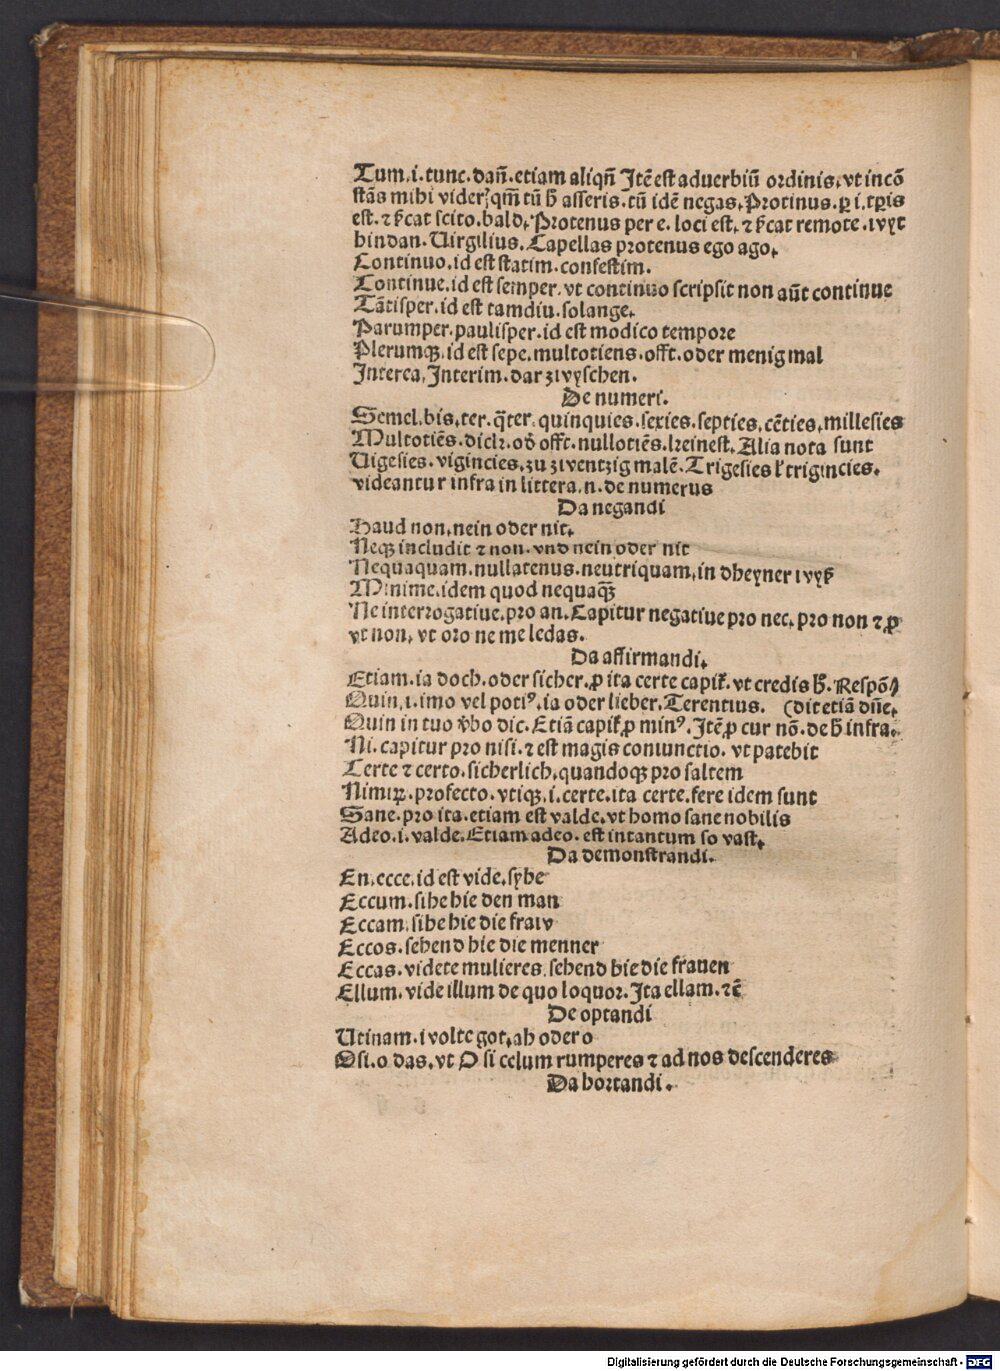 Tum.i.tunc.dañ.etiam aliqñ Itē est aduerbiū ordinis.vt incō
stās mihi videris qm̄ tū h̄ asseris.tū idē negas.Protinus.ꝑ i.tꝑis
est.⁊ sīcat scito.bald.Protenus per e.loci est.⁊ sīcat remote.wyt
hindan.Uirgilius.Capellas protenus ego ago.
Continuo.id est statim.confestim.
Continue.id est semper.vt continuo scripsit non aūt continue
Tātisper.id est tamdiu.solange.
Parumper.paulisper.id est modico tempore
Plerumqꝫ.id est sepe.multotiens.offt.oder menig mal
Interea.Interim.dar zwyschen.
De numeri.
Semel.bis.ter.q̄ter.quinquies.sexies.septies.cēties.millesies
Multotiēs.dick.od̄ offt.nullotiēs.keinest.Alia nota sunt
Uigesies.vigincies.zu zwentzig malē.Trigesies ł trigincies.
videantur infra in littera.n.de numerus
Da negandi
Haud non.nein oder nit.
Neqꝫ includit ⁊ non.vnd nein oder nit
Nequaquam.nullatenus.neutriquam.in dheyner wyß
Minime.idem quod nequaqꝫ
Ne interrogatiue.pro an.Capitur negatiue pro nec.pro non ⁊ ꝓ
vt non.vt oro ne me ledas.
Da affirmandi.
Etiam.ia doch.oder sicher.ꝓ ita certe capit̄.vt credis h̄.Respō
Quin.i.imo vel potiꝰ.ia oder lieber.Terentius. (dit etiā dñe.
Quin in tuo v̄bo dic.Etiā capit̄ ꝓ minꝰ.Itē ꝓ cur nō.de h̄ infra.
Ni.capitur pro nisi.⁊ est magis coniunctio.vt patebit
Certe ⁊ certo.sicherlich.quandoqꝫ pro saltem
Nimiꝝ.profecto.vtiqꝫ.i.certe.ita certe.fere idem sunt
Sane.pro ita.etiam est valde.vt homo sane nobilis
Adeo.i.valde.Etiam adeo.est intantum so vast.
Da demonstrandi.
En.ecce.id est vide.sybe
Eccum.sihe hie den man
Eccam.sihe hie die fraw
Eccos.sehend hie die menner
Eccas.videte mulieres.sehend hie die frauen
Ellum.vide illum de quo loquor.Ita ellam.⁊c̄
De optandi
Utinam.wolte got.ah oder o
Osi.o das.vt O si celum rumperes ⁊ ad nos descenderes
Da hortandi.
Digitalisierung gefördert durch die Deutsche Forschungsgemeinschaft - DFG